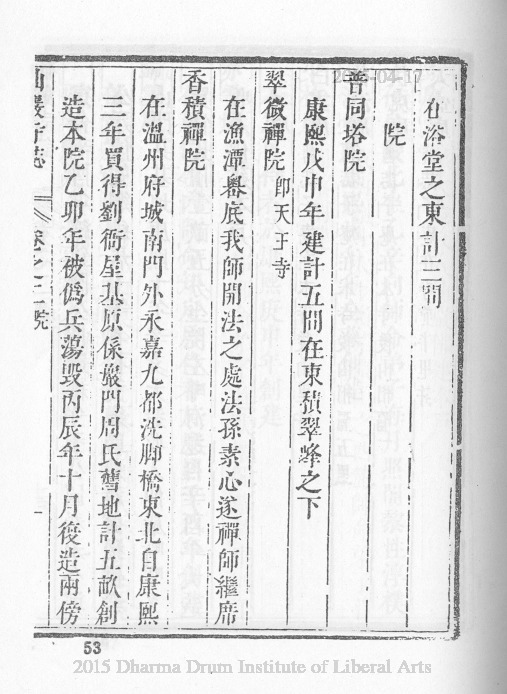 在浴堂之東計三間
院
普同塔院
康熙戊申年建計五間在東積翠峰之下
翠微禪院即天王寺
在漁潭礐底我師開法之處法孫素心遂禪師繼席
香積禪院
在溫州府城南門外永嘉九都洗脚橋東北自康熙
三年買得劉衙屋基原係嚴門周氏舊地計五畝創
造本院乙卯年被僞兵蕩毀丙辰年十月後造兩傍
仙巖寺志 卷之二 院
53
2015-04-17
2015 Dharma Drum Institute of Liberal Arts